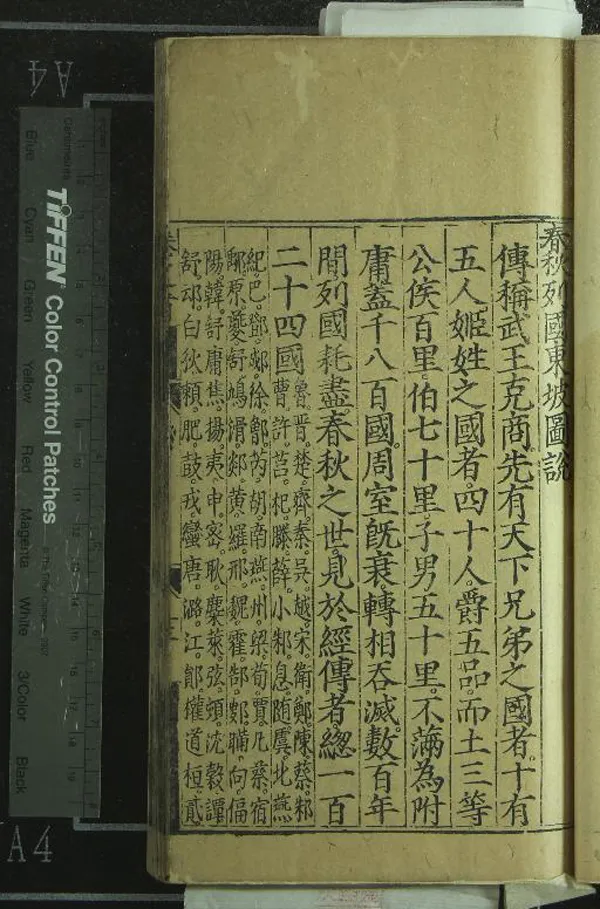 春秋列國東坡圖說
傳稱武王克商。先有天下兄弟之國者。十有
五人姬姓之國者。四十人。爵五品。而土三等
公侯百里。伯七十里。子男五十里。不滿為附
庸蓋千八百國。周室既衰轉相吞滅。數百年
間列國耗盡。春秋之世。見於經傳者總一百
二十四國
魯。晉。楚。齊。秦。吳。越。宋。衛。鄭。陳。蔡。邾
曹。許。莒。杞。滕。薛。小邾。息。随。虞。北燕
紀。巴。鄧。郕。徐。鄫。芮。胡。南燕。州。梁。荀。賈。凡。祭。宿
原。夔。舒鳩。滑。郯。黃。羅。邢。魏。霍。郜。瞞。向。偪
陽。韓。舒庸。焦。揚。夷。申。密。耿。麋。萊。弦。頓。沈。穀。譚
舒。白狄。賴。肥。鼓。戎。蠻。唐。潞。江。鄖。權。道。桓。貳
A4
TIFFEN Color Control Patches
Centimetres
Blue
Cyan
Green
Yellow
Red
Magenta
White
3/Color
Black
A4